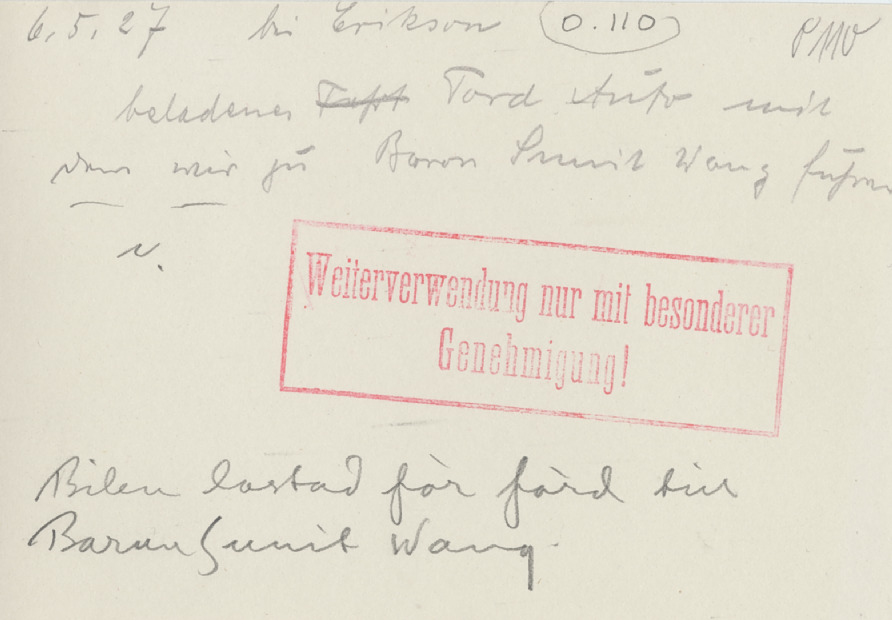 6.5.27 bei Erikson O.110 P110
beladenes Ford Auto mit
dem wir zu Baron Sunit Wang führen
N.
Weiterverwendung nur mit besonderer
Genehmigung!
Bilen lastad för färd till
Barun Sunit Wang.